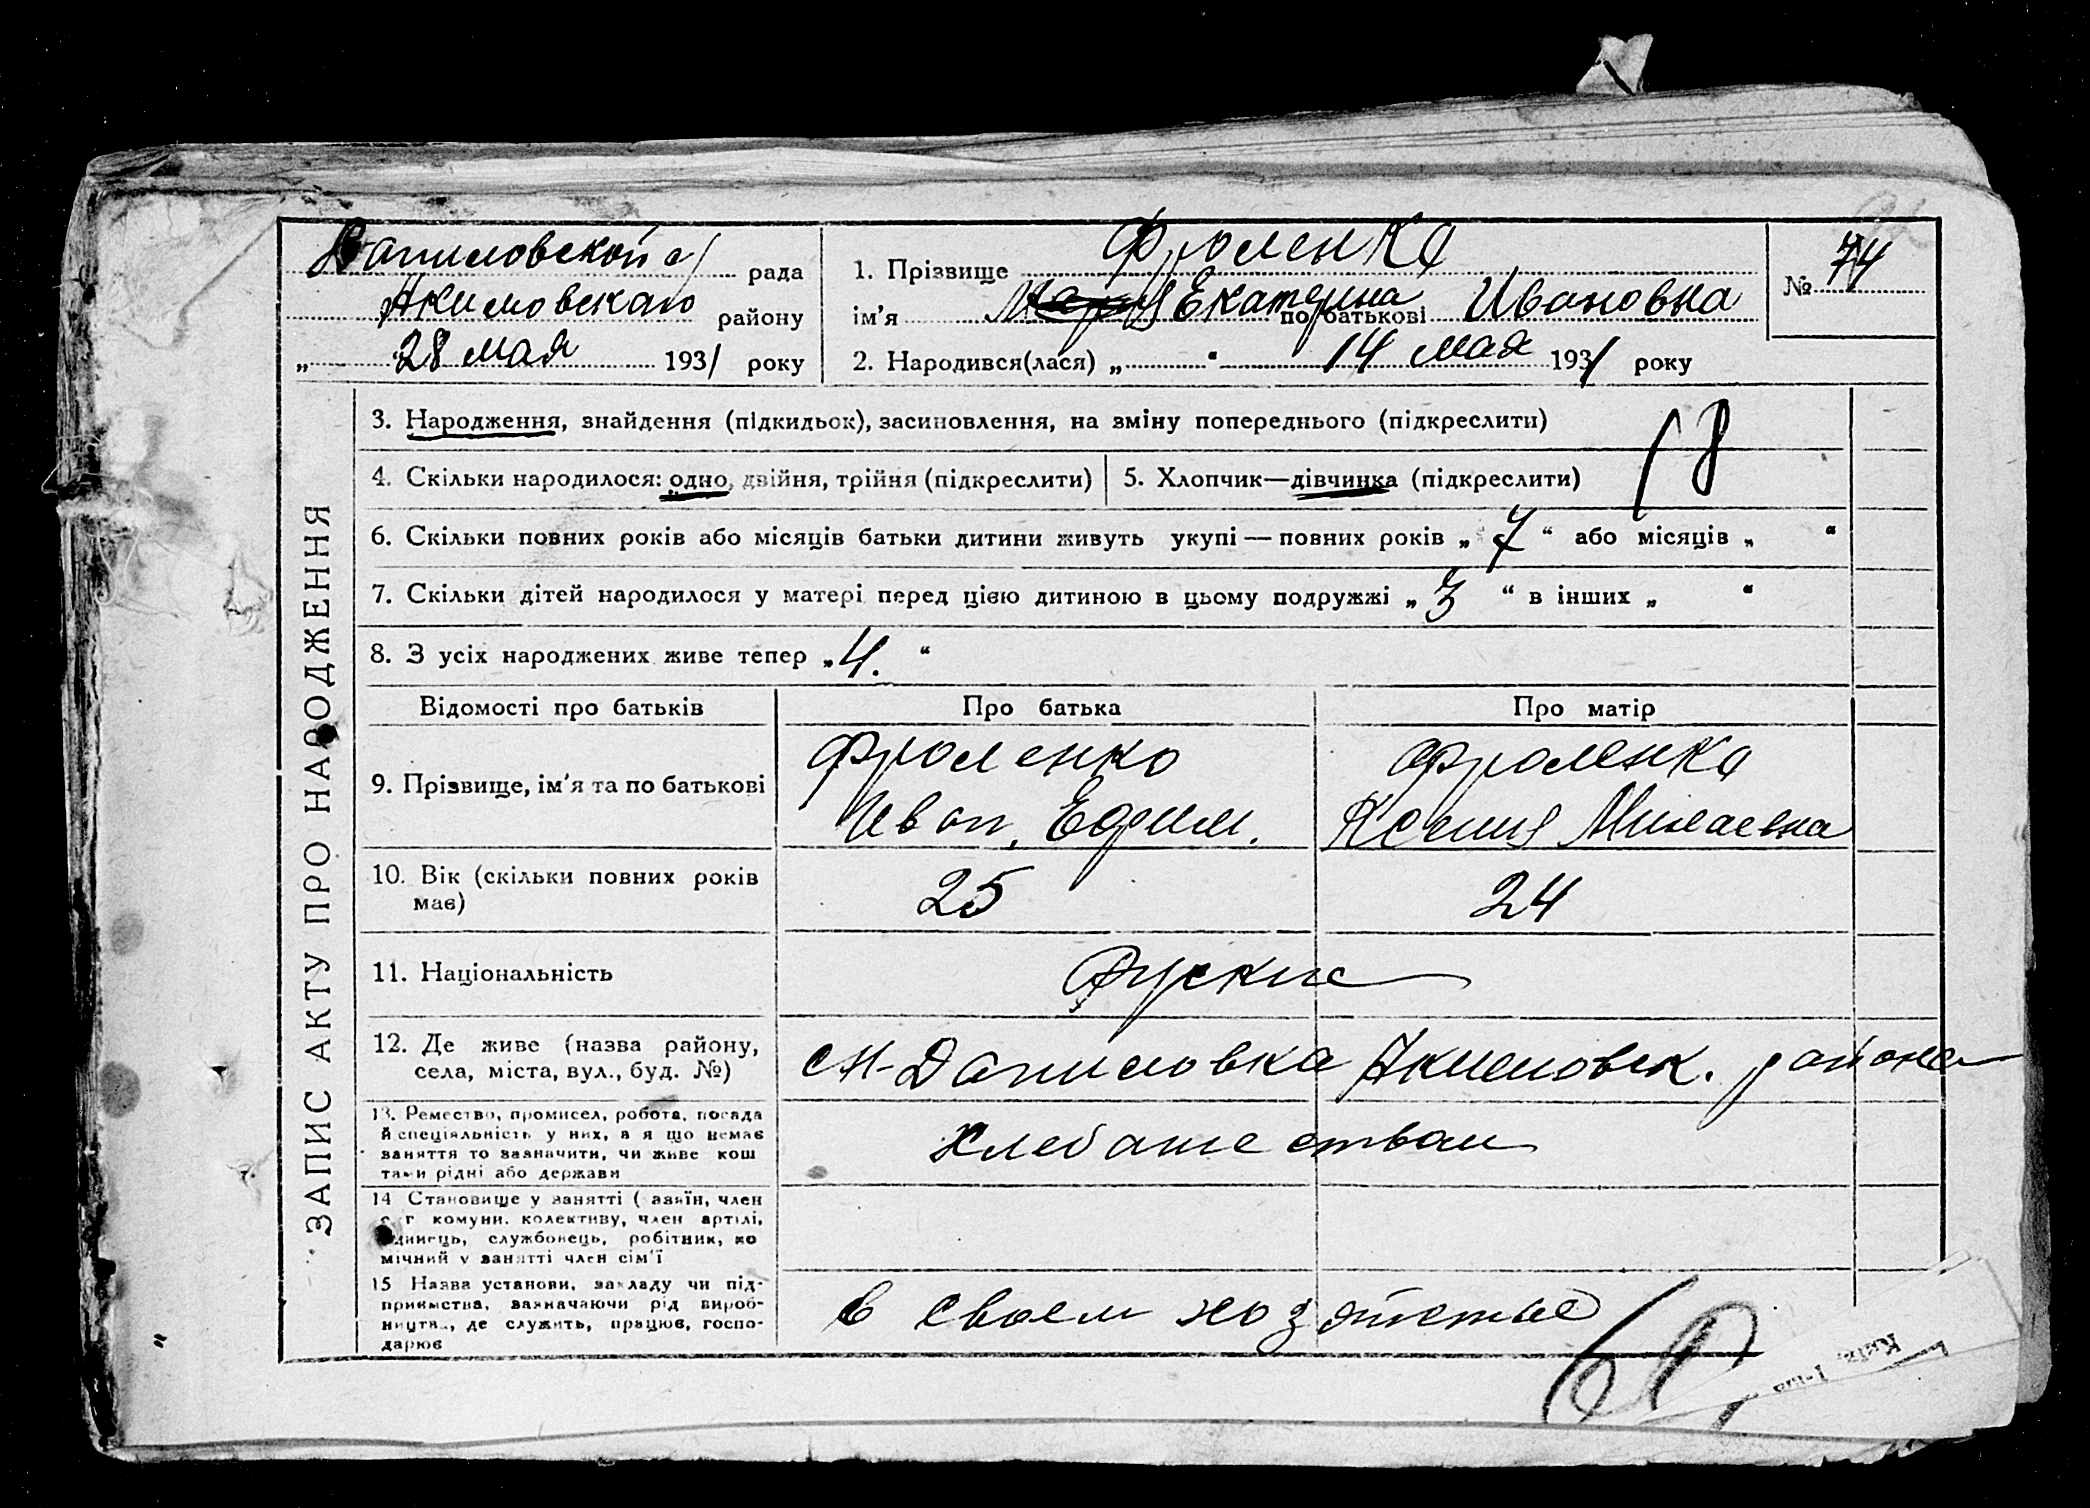 92
Даниловской с/ рада
Акимовского району
„ 28 мая 1931 року
1. Прізвище Фроленко
ім'я Екатерина по батькові Ивановна
2. Народився(лася) „ “ 14 мая 1931 року
№ 74
ЗАПИС АКТУ ПРО НАРОДЖЕННЯ
3. Народження, знайдення (підкидьок), засиновлення, на зміну попереднього (підкреслити)
4. Скільки народилося: одно, двійня, трійня (підкреслити)
5. Хлопчик—дівчинка (підкреслити)
6. Скільки повних років або місяців батьки дитини живуть укупі — повних років „ 7 “ або місяців „ “
7. Скільки дітей народилося у матері перед цією дитиною в цьому подружжі „ 3 “ в інших „ “
8. З усіх народжених живе тепер „ 4. “
Відомості про батьків Про батька Про матір
9. Прізвище, ім'я та по батькові
Фроленко
Иван. Ефим.
Фроленко
Ксения Минаевна
10. Вік (скільки повних років
має)
25 24
11. Національність Руские
12. Де живе (назва району,
села, міста, вул., буд. №)
Даниловка Акимовск. района
13. Ремество, промисел, робота, посада
й спеціяльність у них, а я що немає
заняття то зазначити, чи живе кош
тами рідні або держави
Хлебопашеством
14 Становище у занятті ( азяїн, член
с г комуни. колективу, член артілі,
одинець, службовець, робітник, по
мічний у занятті член сім'ї
15 Назва установи, закладу чи під-
приємства, зазначаючи рід вироб-
ництв., де служить, працює, госпо-
дарює
в своем хозяйстве